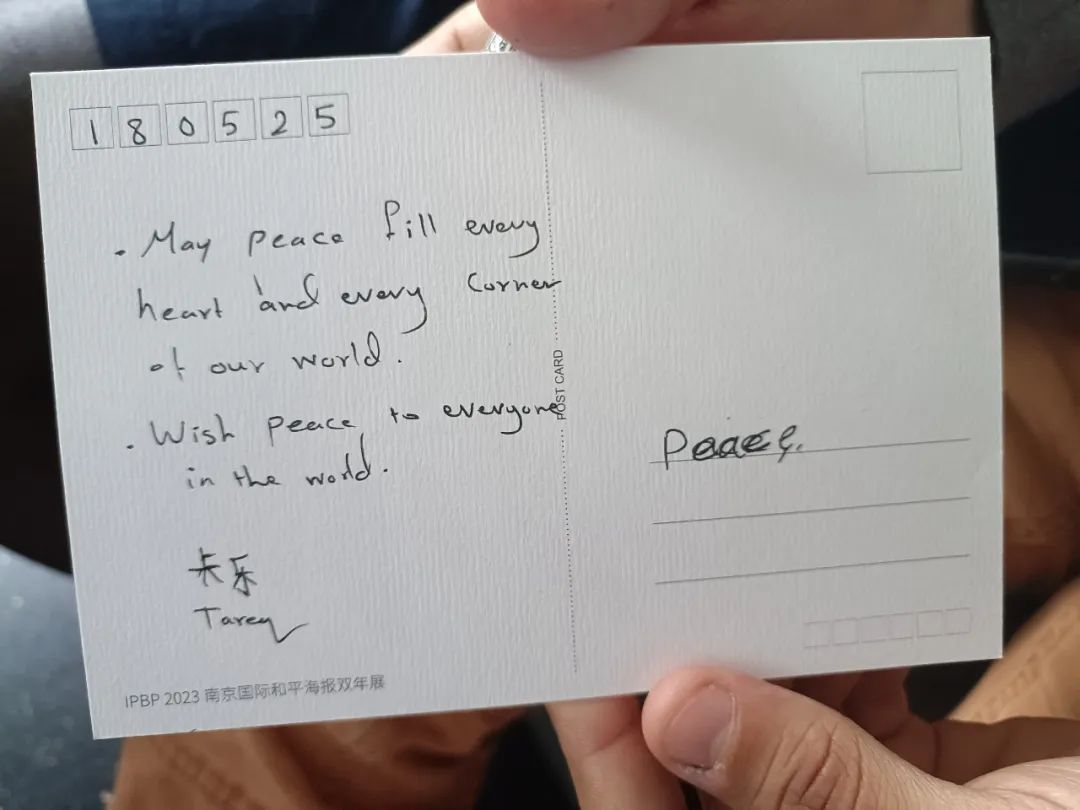 180525
. May peace fill every
heart and every corner
of our world.
. Wish peace to everyone
in the world.
卡乐
Tareq
IPBP 2023 南京国际和平海报双年展
POST CARD
Peace.